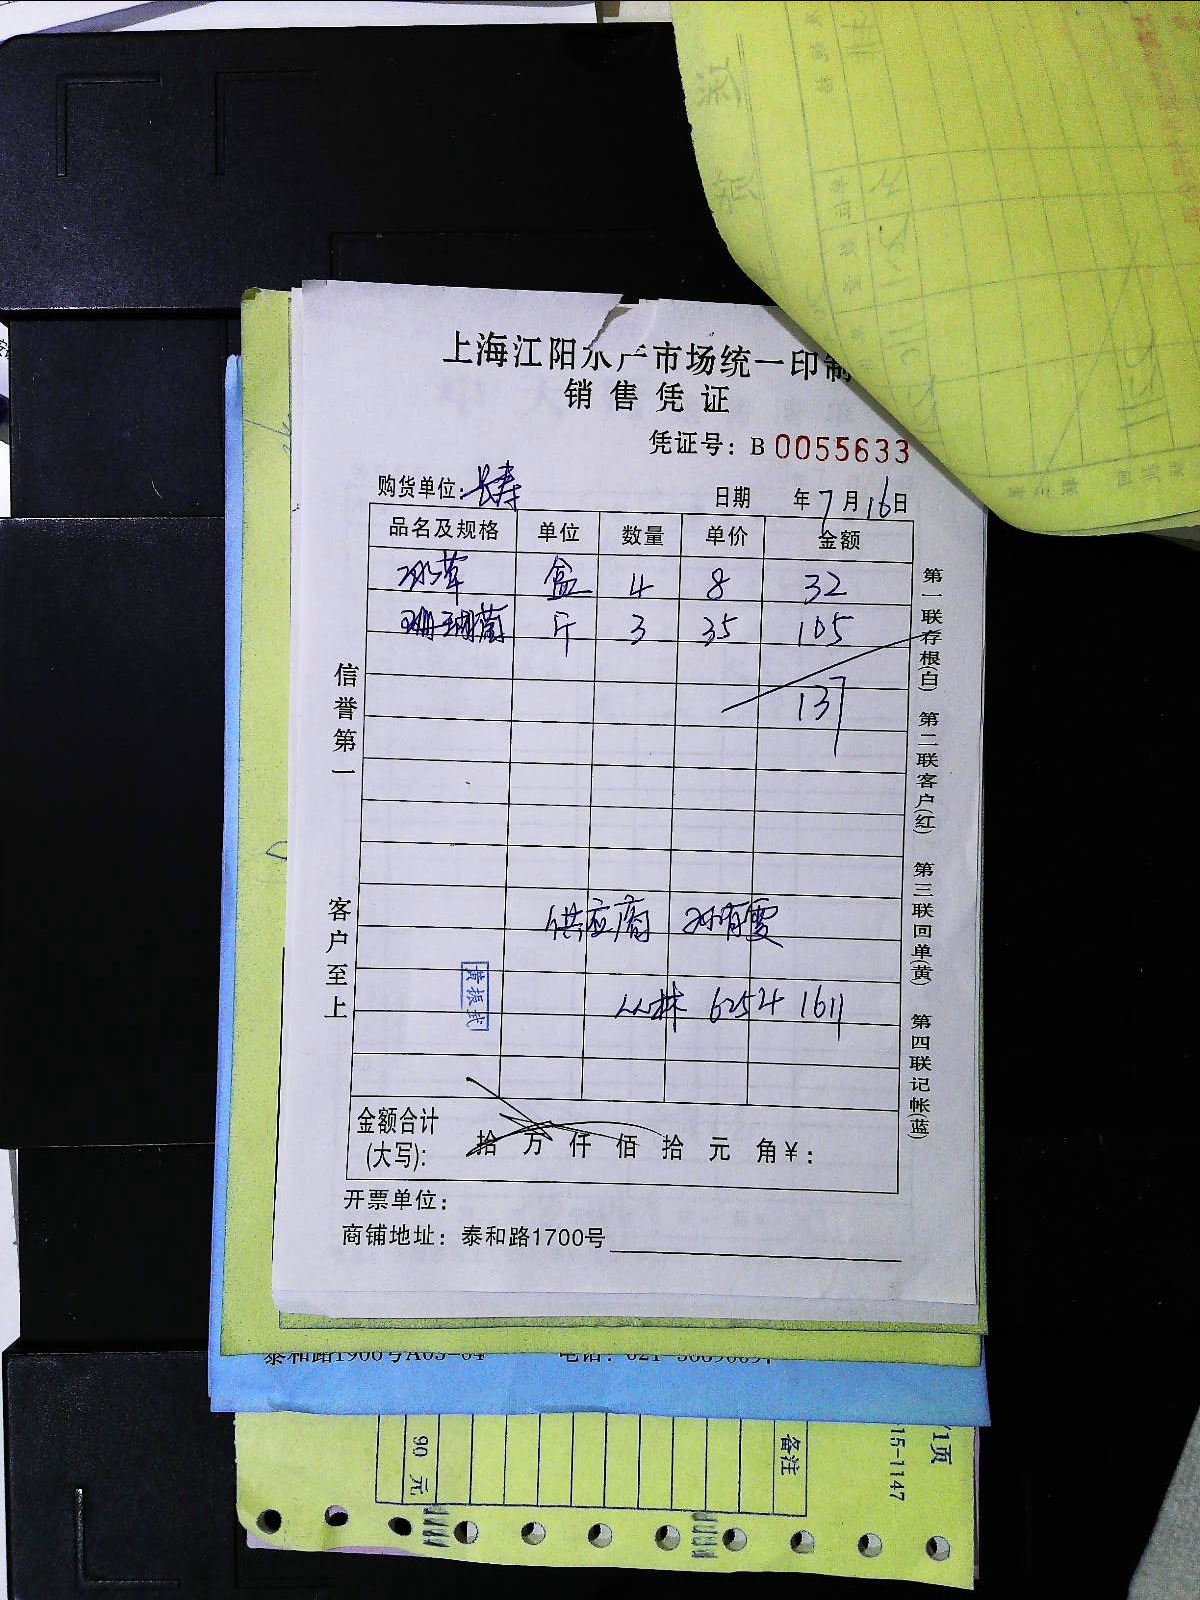 上海江阳水产市场统一印制
销售凭证
凭证号：B 0055633
购货单位：长寿
日期 年7月16日
品名及规格 单位 数量 单价 金额
冰草 盒 4 8 32
珊瑚菌 斤 3 35 105
137
信誉第一
客户至上
第一联存根(白) 第二联客户(红) 第三联回单(黄) 第四联记帐(蓝)
供应商
黄振武
丛林 6254 1611
金额合计
(大写): 拾 万 仟 佰 拾 元 角￥:
开票单位：
商铺地址：泰和路1700号
泰和路1906号A03-04
备注
90 元
1页
15-1147